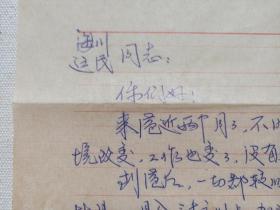 海川
这民 同志:
你们好:
来港近两个月了,不
境改变,工作也变了,没有
到港后,一切都较